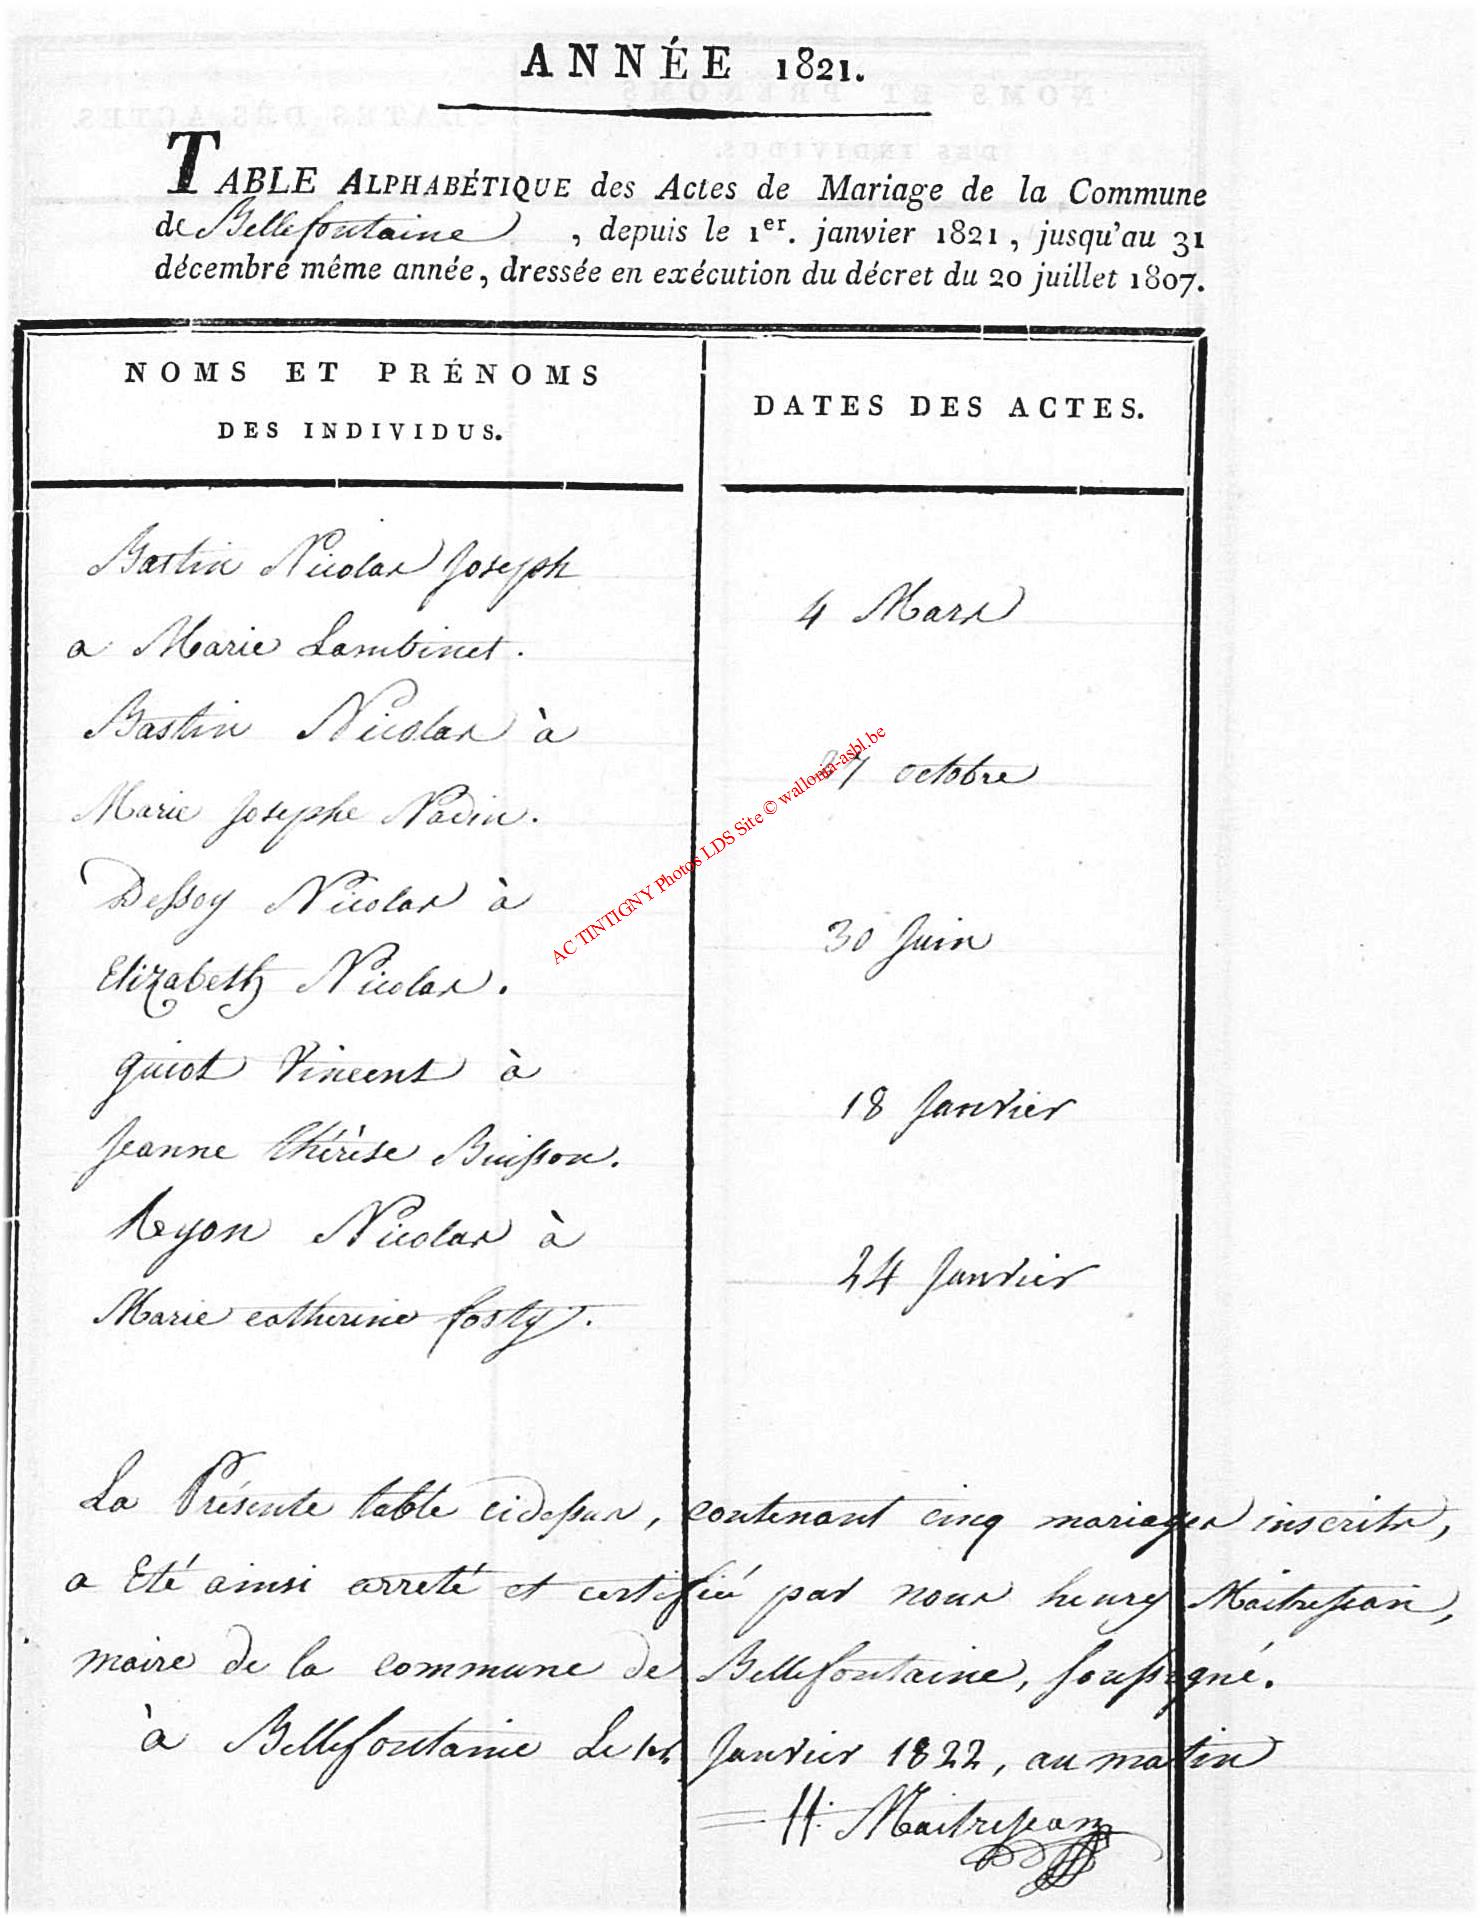 ANNÉE 1821.
TABLE ALPHABÉTIQUE des Actes de Mariage de la Commune
de Bellefontaine , depuis le 1er. janvier 1821, jusqu'au 31
décembre même année, dressée en exécution du décret du 20 juillet 1807.
NOMS ET PRÉNOMS
DES INDIVIDUS.
DATES DES ACTES.
Bastin Nicolas Joseph
a Marie Lambinet.
4 Mars
Bastin Nicolas à
Marie Josephe Nadin.
27 octobre
Dessoy Nicolas à
Elizabeth Nicolas.
30 Juin
guiot Vincent à
Jeanne thérèse Buisson.
18 Janvier
Ryon Nicolas à
Marie catherine fosty.
24 Janvier
La Présente table cidessus, contenant cinq mariages inscrits,
a Eté ainsi arreté et certifié par nous henry Maitrejean,
maire de la commune de Bellefontaine, soussigné.
à Bellefontaine Le 1er Janvier 1822, au matin
H: Maitrejean
AC TINTIGNY Photos LDS Site © wallonia-asbl.be